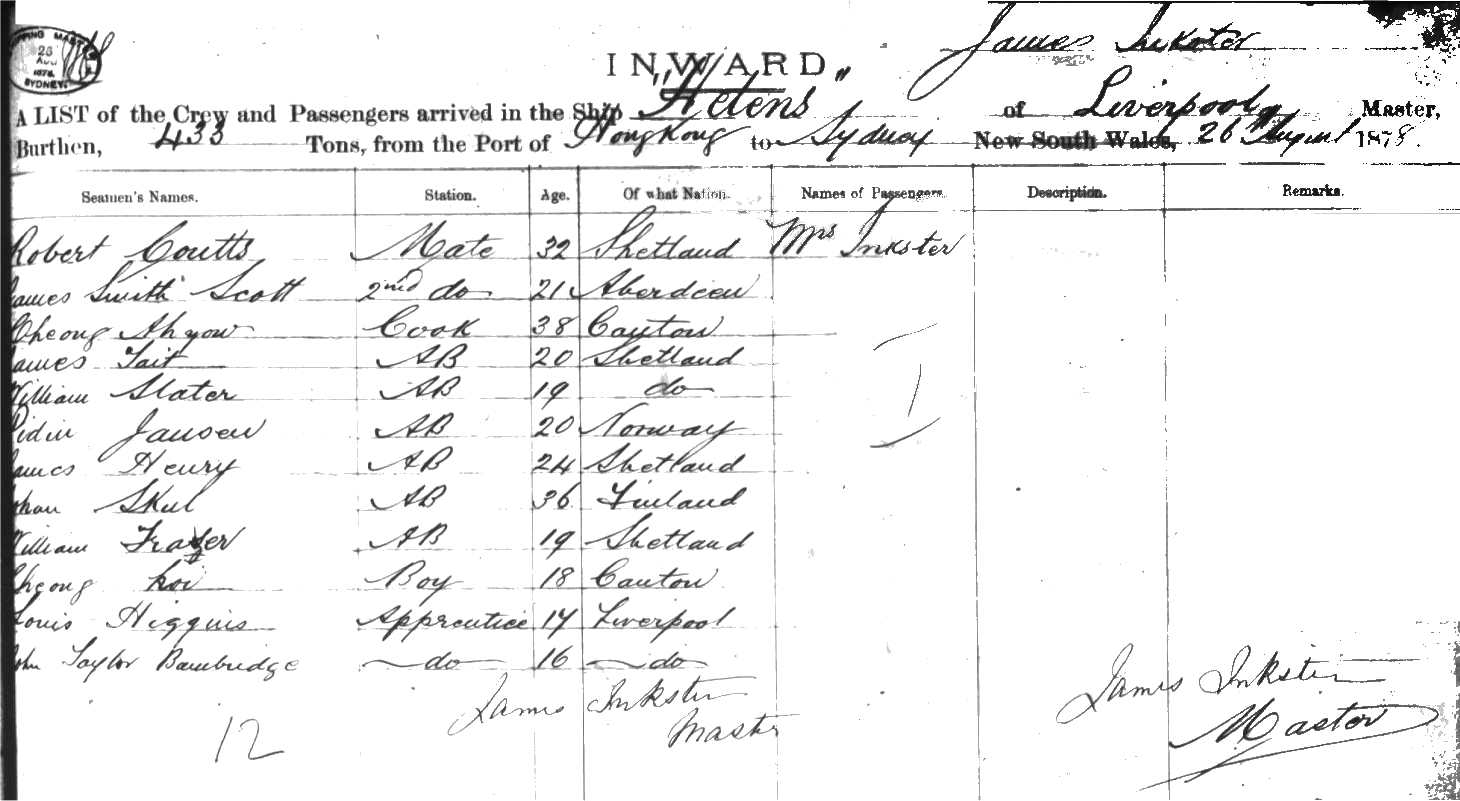 SHIPPING MASTER
26
AUG
1878
SYDNEY
James Inkster
INWARD
A LIST of the Crew and Passengers arrived in the Ship "Helens" of Liverpool Master,
Burthen, 433 Tons, from the Port of Hong Kong to Sydney New South Wales, 26 August 1878.
Seamen's Names. Station. Age. Of what Nation. Names of Passengers. Description. Remarks.
Robert Coutts Mate 32 Shetland Mrs Inkster
James Smith Scott 2nd do 21 Aberdeen
Cheong Ahyow Cook 38 Canton
James Tait AB 20 Shetland
William Slater AB 19 do
Jansen AB 20 Norway
James Henry AB 24 Shetland
Johan Skul AB 36 Finland
William Frazer AB 19 Shetland
Cheong Koi Boy 18 Canton
Louis Higgins Apprentice 17 Liverpool
John Taylor Bambridge do 16 do
1
12
James Inkster
Master
James Inkster
Master